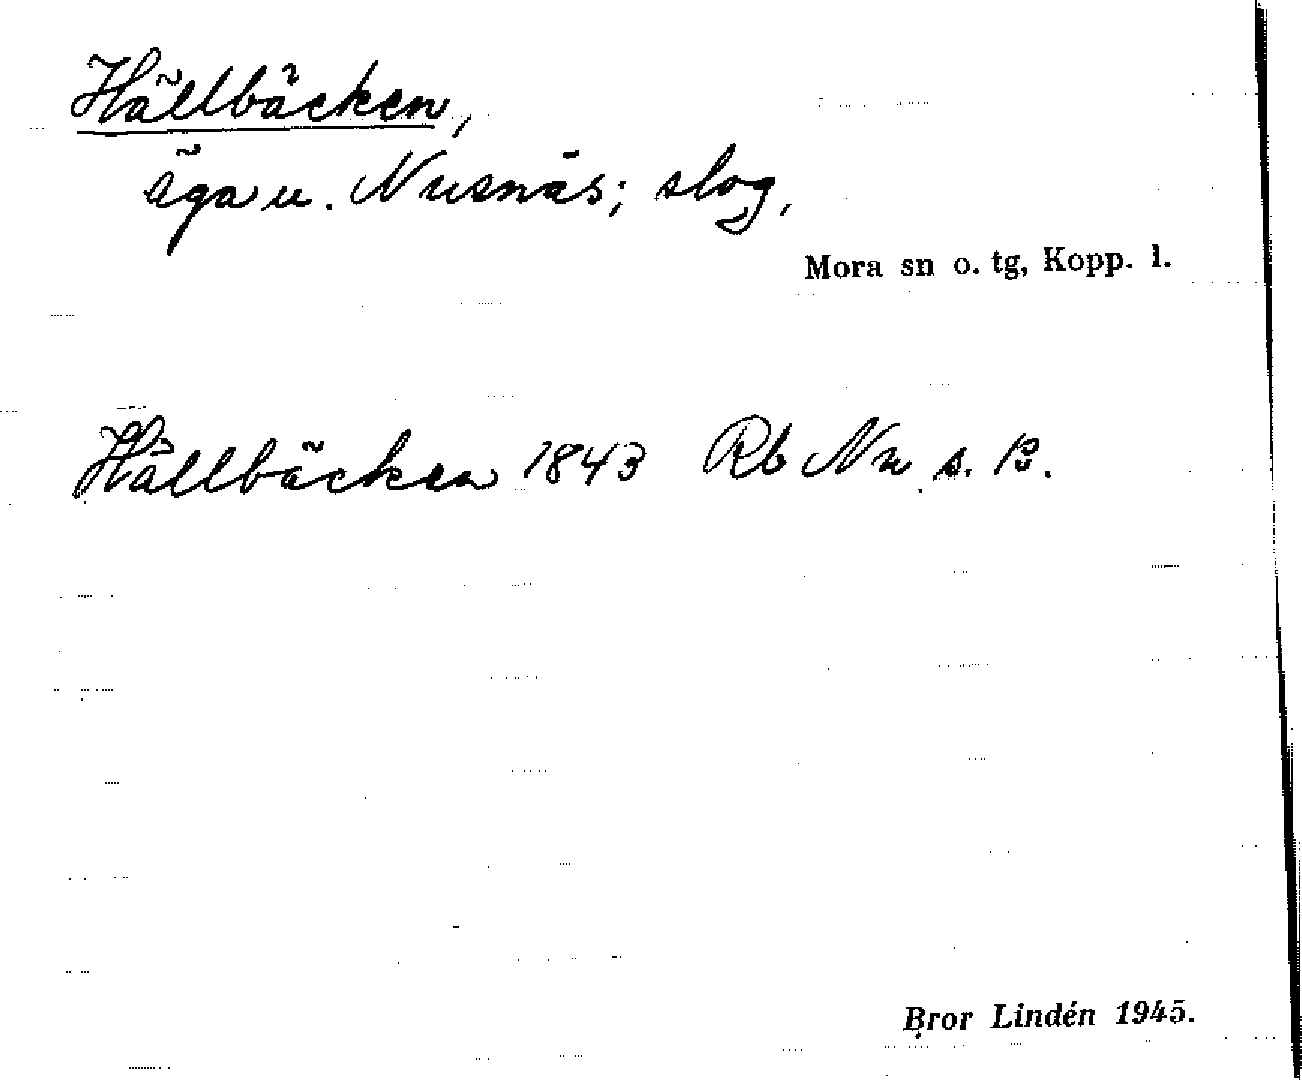 Hällbäcken,
äga u. Nusnäs; slog,
Mora sn o. tg, Kopp. l.
Hällbäcken 1843 Rb Nu s. 13.
Bror Lindén 1945.